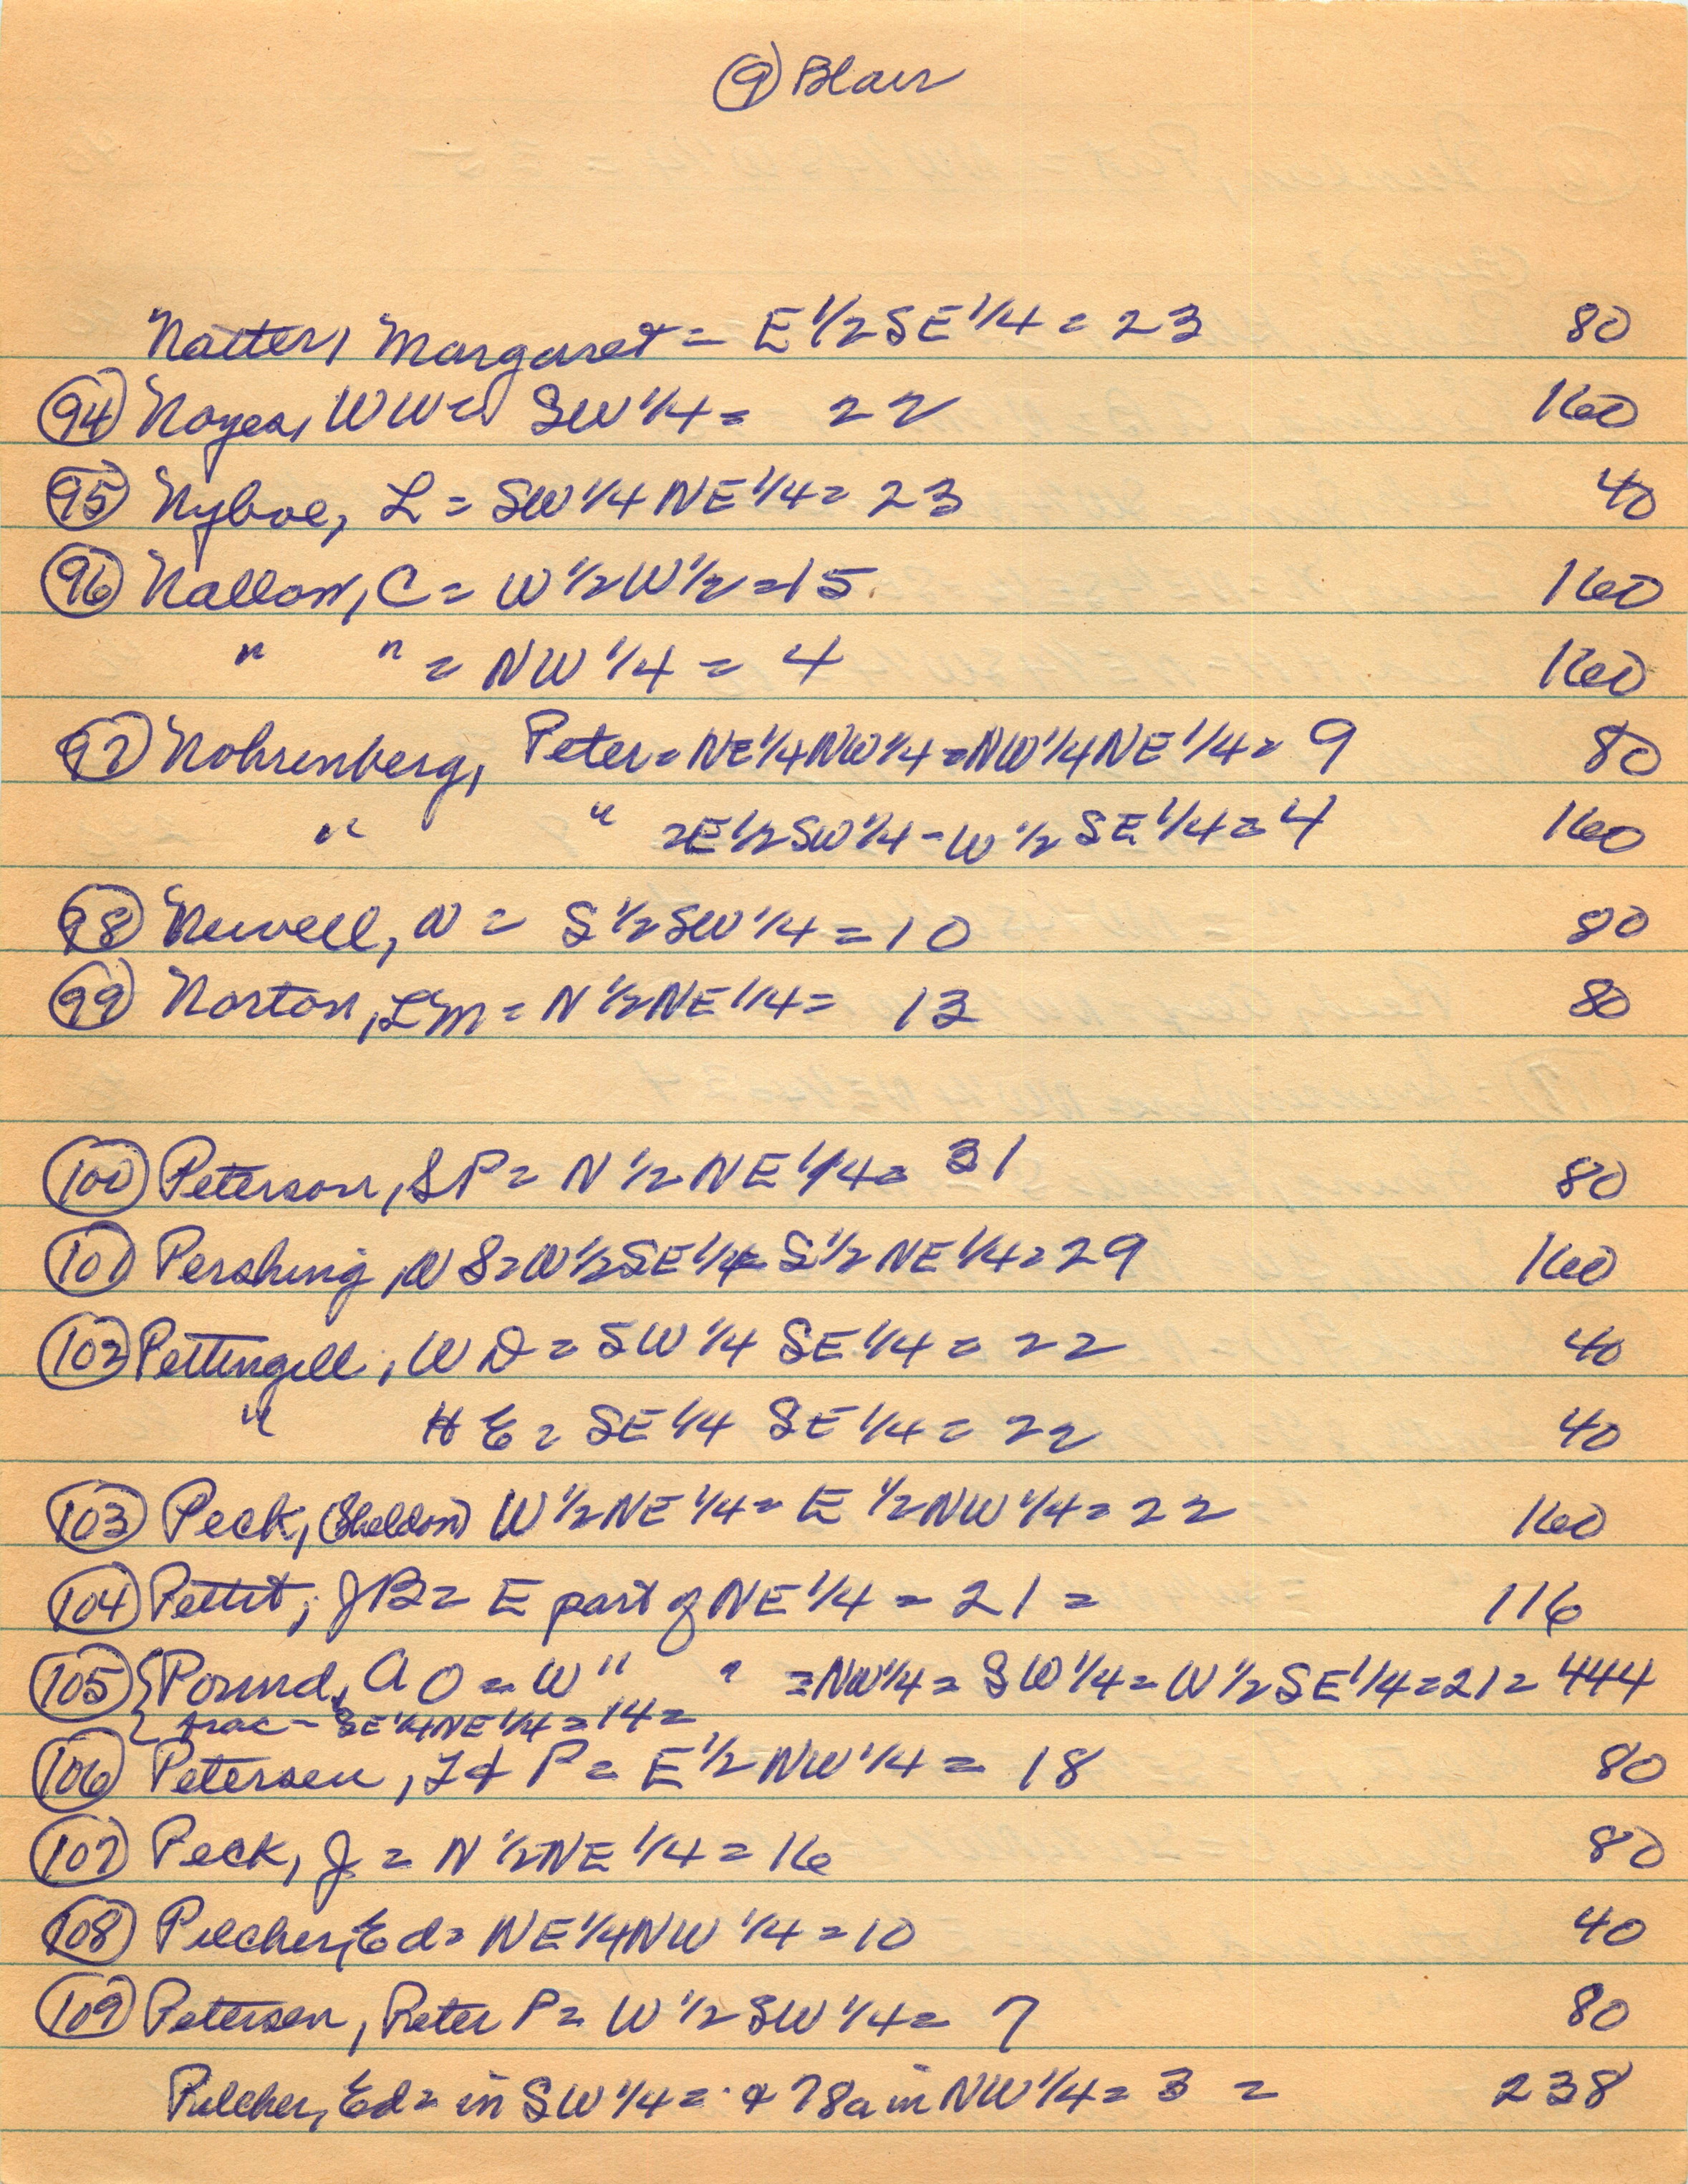 9 Blair
Natter, Margaret = E 1/2 SE 1/4 = 23 80
94 Noyes, WW = SW 1/4 = 22 160
95 Nyboe, L = SW 1/4 NE 1/4 = 23 40
96 Nallon, C = W 1/2 W 1/2 = 15 160
" " = NW 1/4 = 4 160
97 Nohrenberg, Peter = NE 1/4 NW 1/4 = NW 1/4 NE 1/4 = 9 80
" " = E 1/2 SW 1/4 - W 1/2 SE 1/4 = 4 160
98 Newell, N = S 1/2 SW 1/4 = 10 80
99 Norton, LM = N 1/2 NE 1/4 = 13 80
100 Peterson, SP = N 1/2 NE 1/4 = 31 80
101 Pershing, N S = N 1/2 SE 1/4 = S 1/2 NE 1/4 = 29 160
102 Pettingill, W D = SW 1/4 SE 1/4 = 22 40
" H E = SE 1/4 SE 1/4 = 22 40
103 Peck, (Sheldon) W 1/2 NE 1/4 = E 1/2 NW 1/4 = 22 160
104 Pettit, JB = E part of NE 1/4 = 21 = 116
105 { Pound, A O = W " " = NW 1/4 = SW 1/4 = W 1/2 SE 1/4 = 21 = 444
{ frac - SE 1/4 NE 1/4 = 14 =
106 Petersen, I & P = E 1/2 NW 1/4 = 18 80
107 Peck, J = N 1/2 NE 1/4 = 16 80
108 Pilcher, Ed = NE 1/4 NW 1/4 = 10 40
109 Petersen, Peter P = W 1/2 SW 1/4 = 7 80
Pilcher, Ed = in SW 1/4 = & 78a in NW 1/4 = 3 = 238